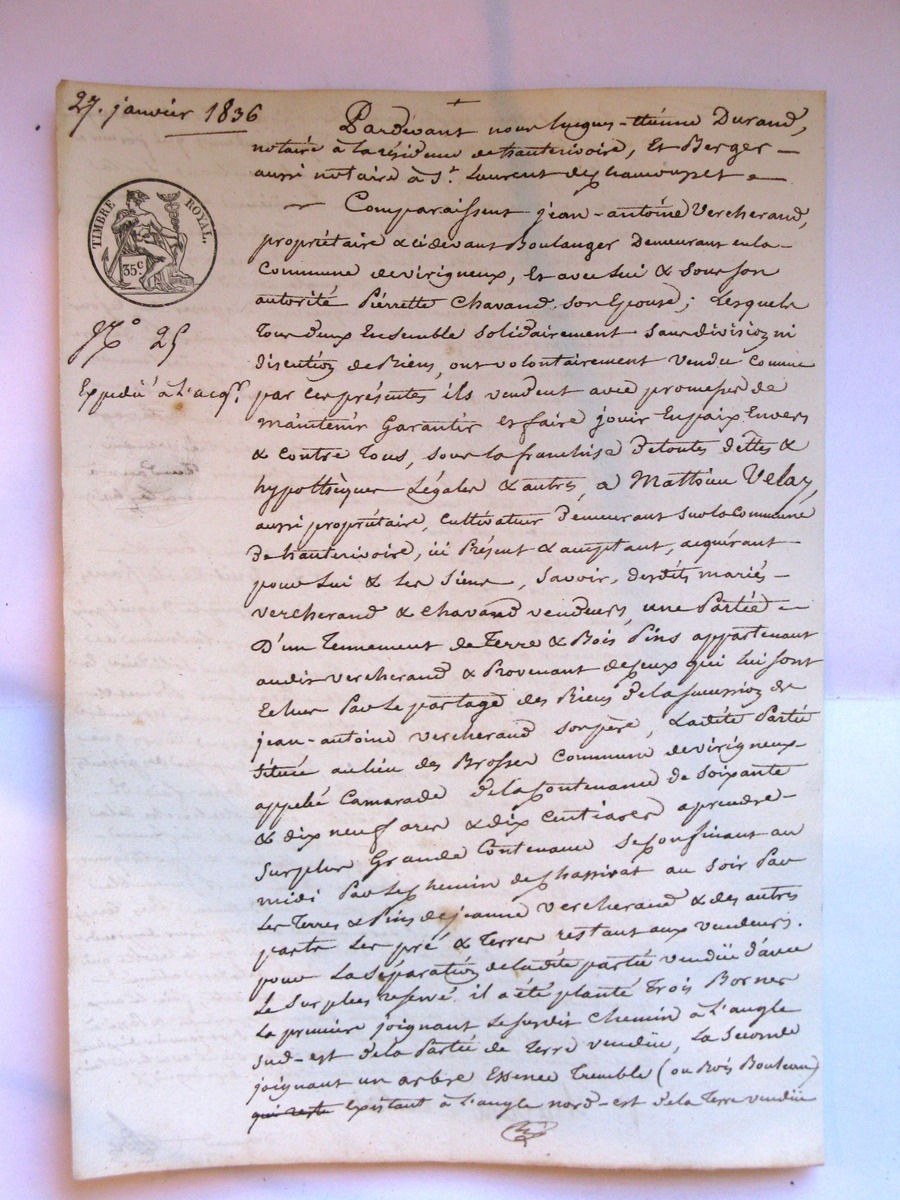 27. janvier 1836
TIMBRE ROYAL.
35c
N.o 25
Expédié à l'acqr.
Pardevant nous Etienne Durand,
notaire à la résidence de hauterivoire, Et Berger
aussi notaire à St. Laurent de Chamousset
Comparaissent jean-antoine Vercherand,
propriétaire & cidevant Boulanger Demeurant en la
Commune de virigneux, Et avec lui & sous son
autorité Pierrette Chavand son Epouse; Lesquels
tous deux Ensemble Solidairement Sans division ni
discution de Biens, ont volontairement vendu Comme
par ces présentes ils vendent avec promesse de
maintenir Garantir et faire jouir En paix Envers
& contre Tous, sous la franchise De toutes dettes &
hypothèques Légales & autres, a Mathieu Velay,
aussi propriétaire, Cultivateur Demeurant sur la Commune
De hauterivoire, ici Présent & acceptant, acquérant
pour Lui & les Siens, Savoir, desdits mariés
vercherand & chavand vendeurs, une Partie
D'un Tennement de Terre & Bois Pins appartenant
audit vercherand & Provenant de Ceux qui lui sont
Echus Par le partage des Biens de la succession de
jean-antoine vercherand son père, Ladite Partie
Située au lieu des Brosses Commune de virigneux
appelé Camarade De la Contenance de Soixante
& dix neuf ares & dix Centiares aprendre
Sur plus Grande Contenance Se Confinant au
midi Par le Chemin de Chassirat au Soir Par
les Terres & Pins de jeanne vercherand & des autres
parts les pré & Terres restant aux vendeurs.
pour La Séparation de ladite partie vendüe d'avec
Le Surplus réservé il a été planté Trois Bornes
La première joignant Le susdit Chemin à L'angle
sud-est de la Partie de Terre vendüe, La Seconde
joignant un arbre Essence Tremble (ou Bois Bouleau)
qui reste Existant à L'angle nord-est de la Terre vendüe